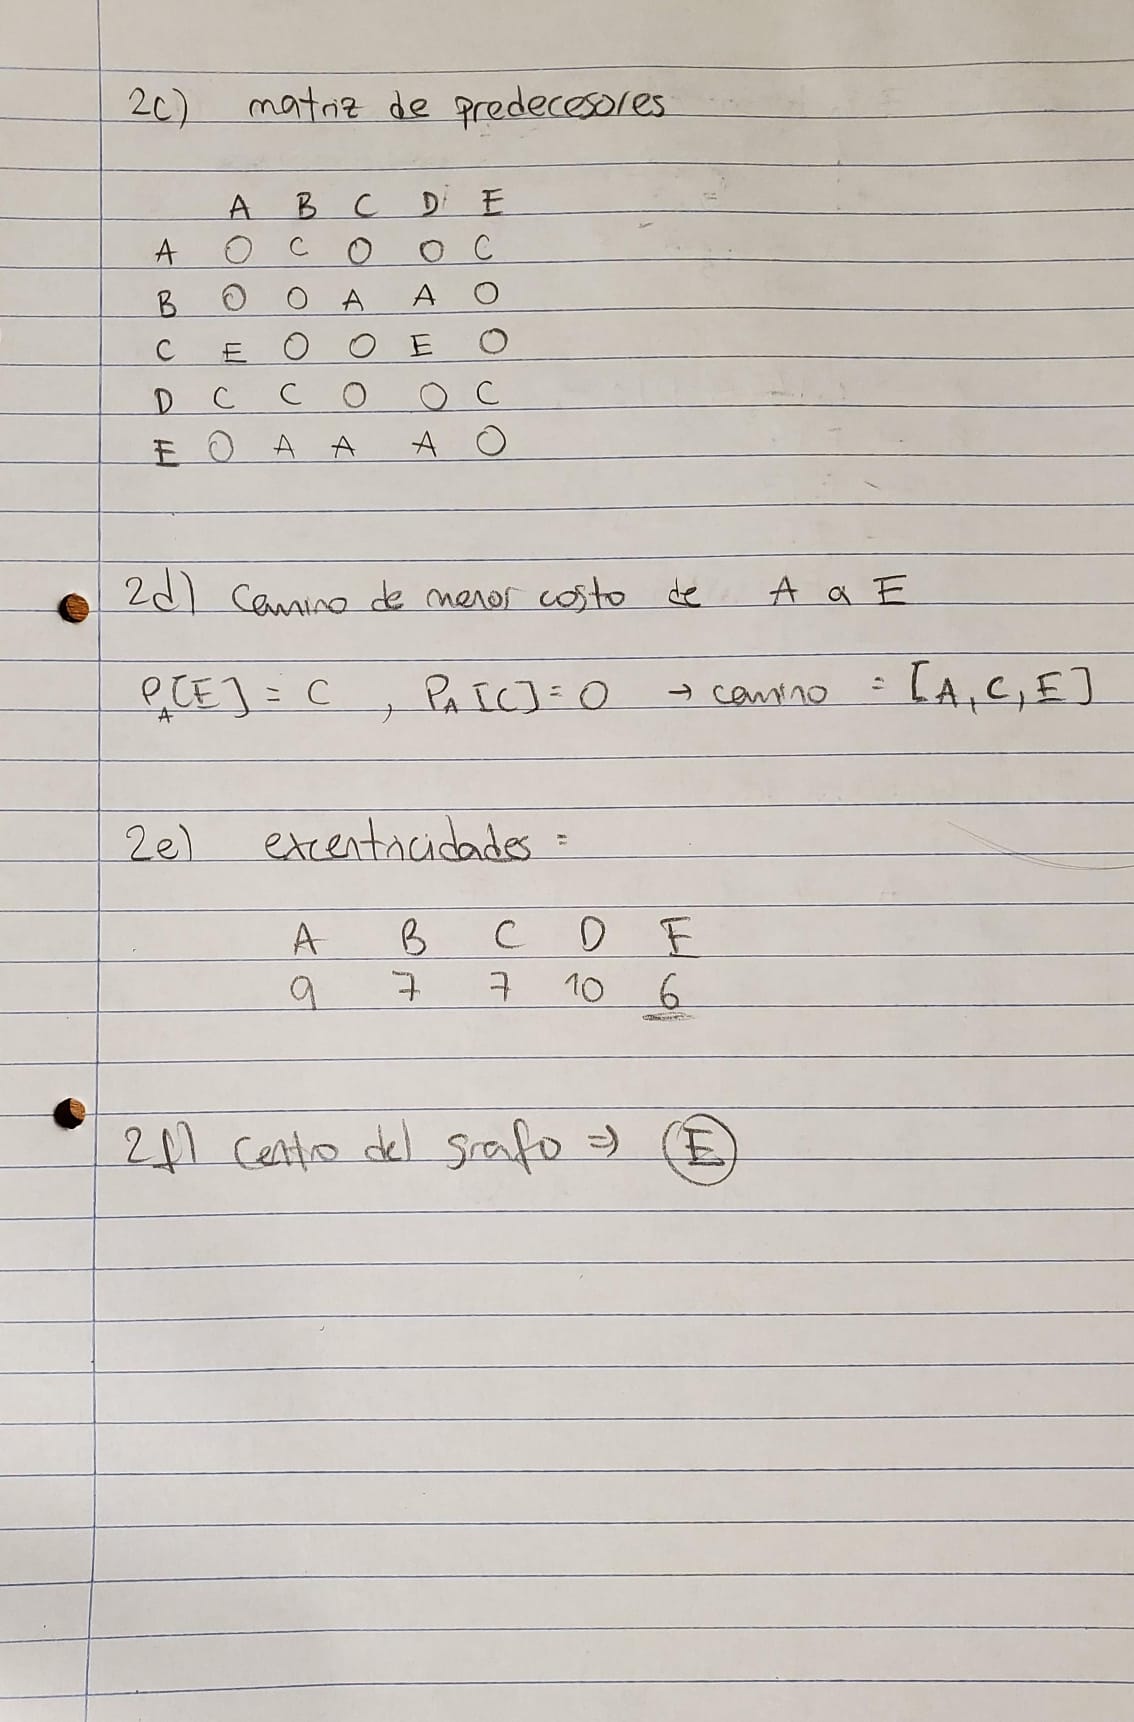 2c) matriz de predecesores
A B C D E
A O C O O C
B O O A A O
C E O O E O
D C C O O C
E O A A A O
2d) Camino de menor costo de A a E
P_A[E] = C , P_A[C] = O → camino = [A, C, E]
2e) excentricidades =
A B C D E
9 7 7 10 6
2f) Centro del grafo ⇒ E